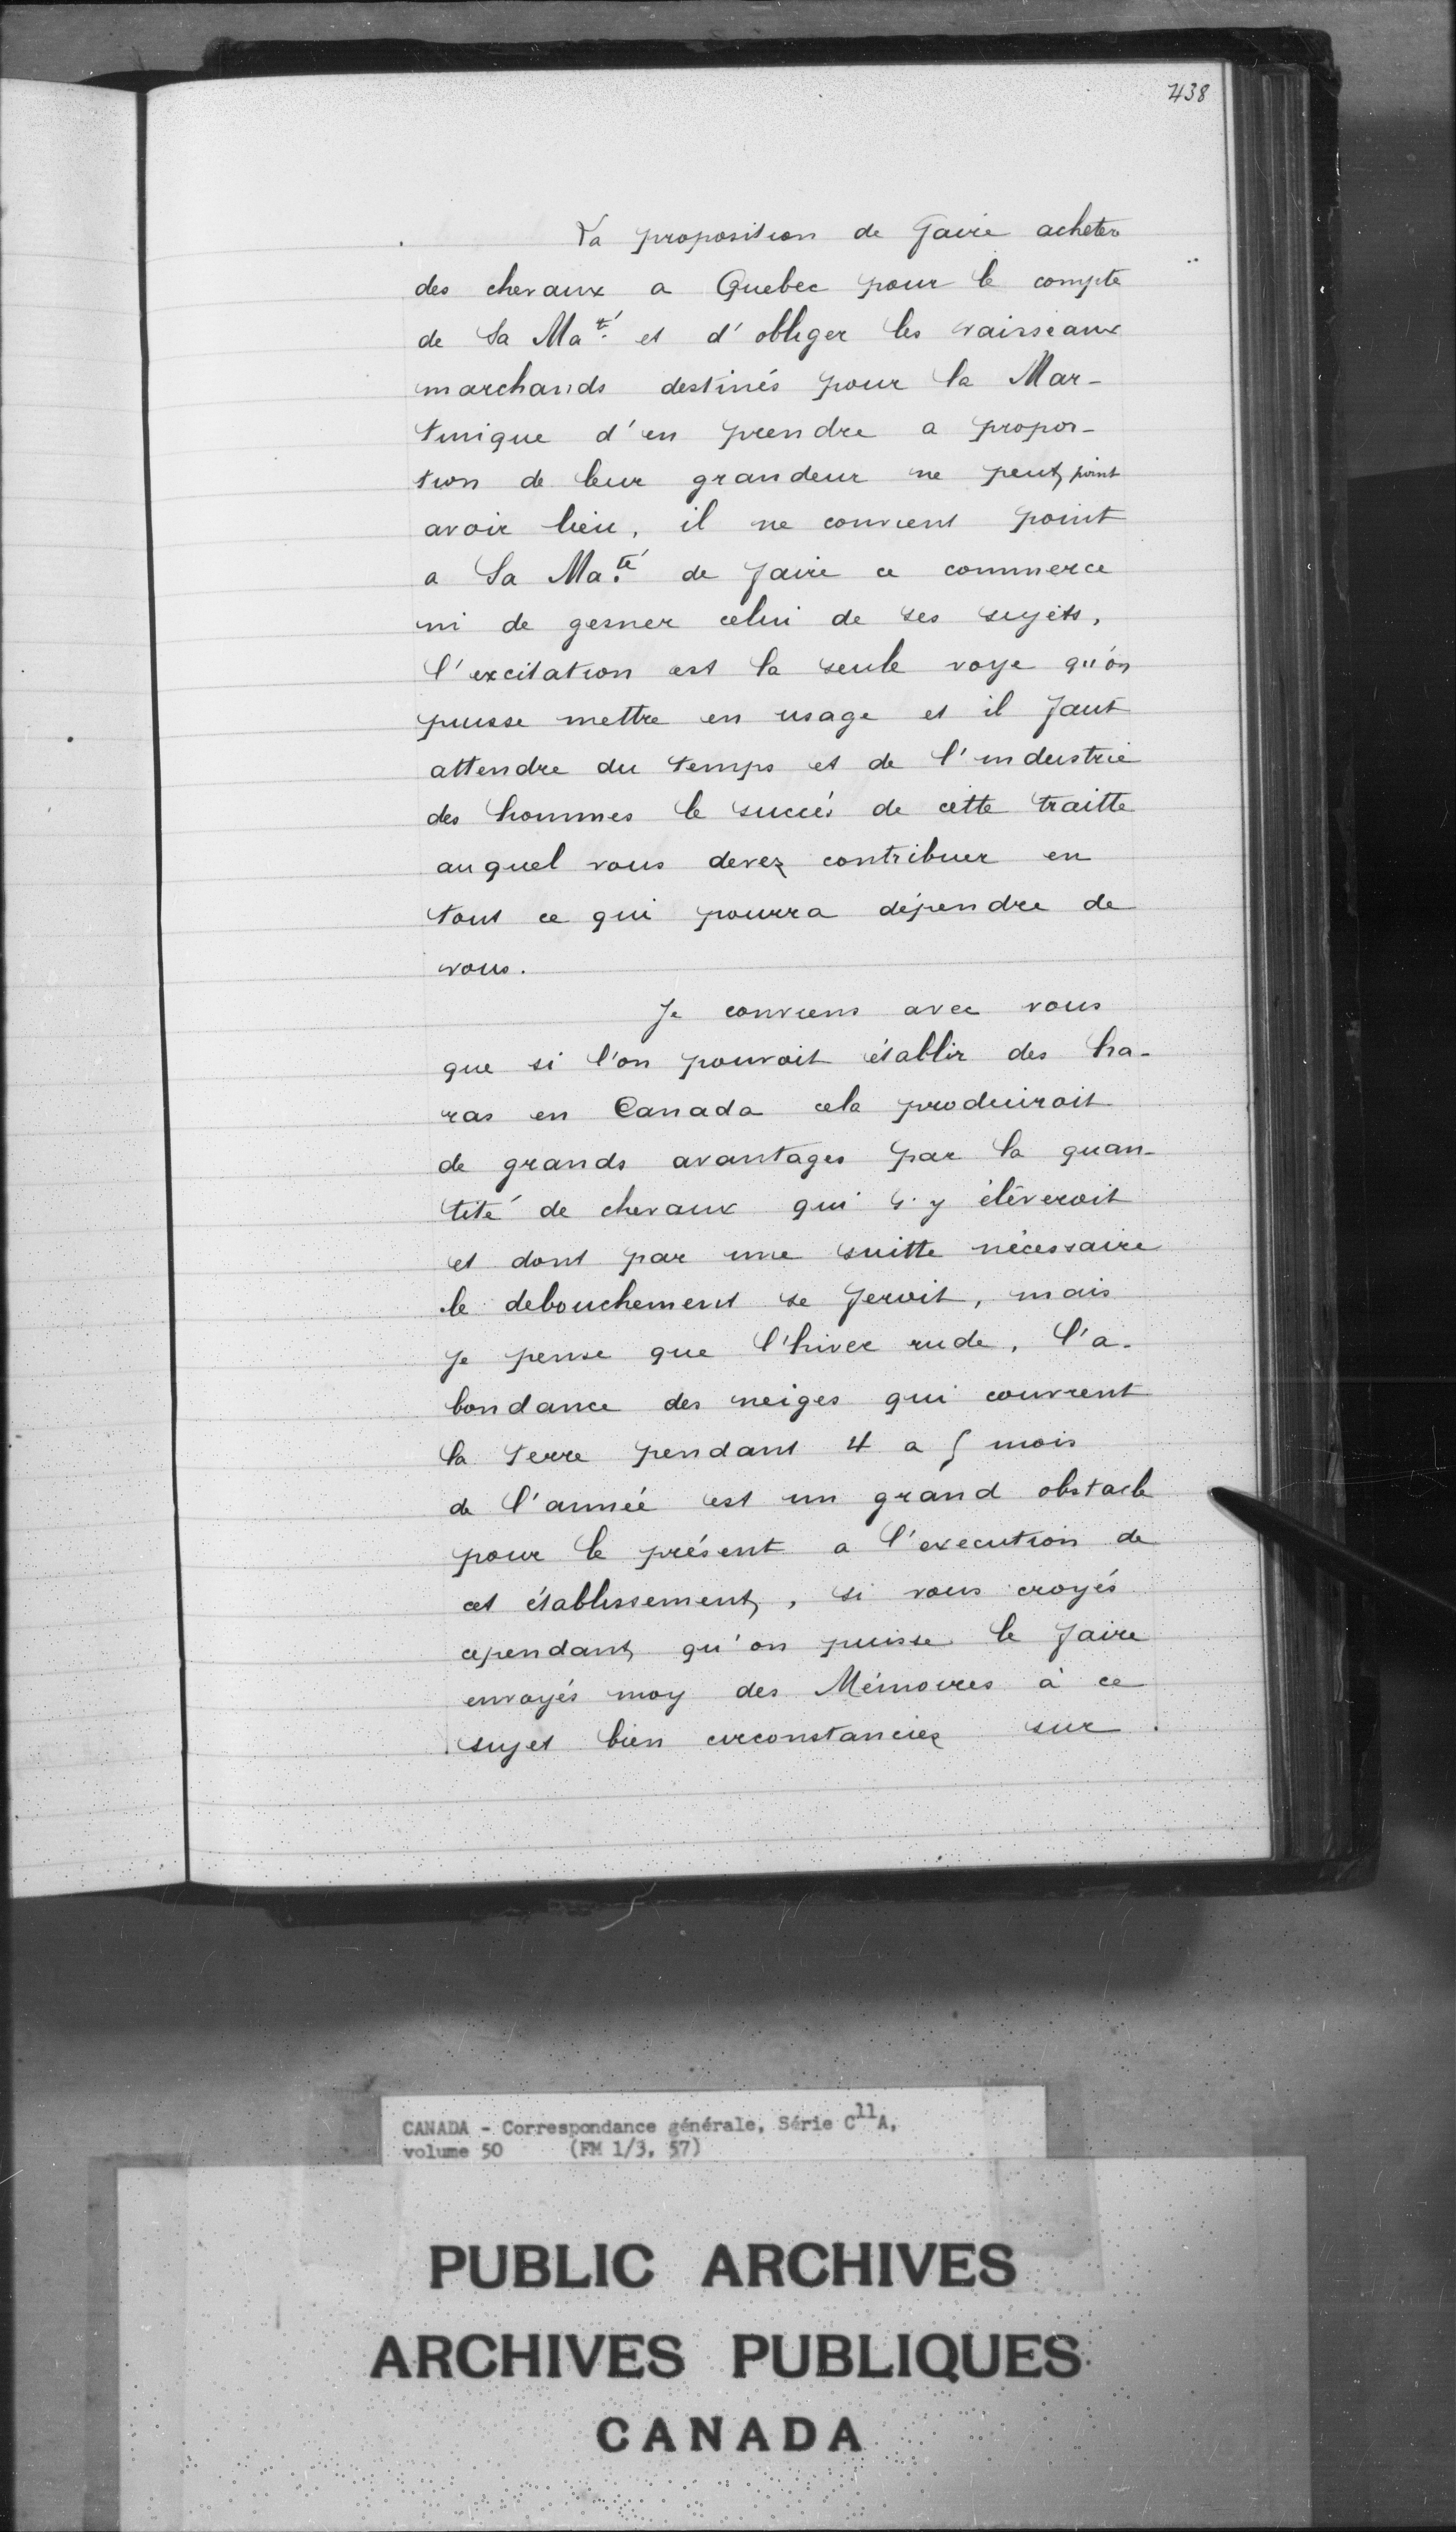 438
La proposition de faire acheter
des chevaux a Quebec pour le compte
de Sa Ma.té et d'obliger les vaisseaux
marchands destinés pour la Mar-
tinique d'en prendre a propor-
tion de leur grandeur ne peut point
avoir lieu, il ne convient point
a Sa Ma.té de faire ce commerce
ni de gesner celui de ses sujets,
l'excitation est la seule voye qu'on
puisse mettre en usage et il faut
attendre du temps et de l'industrie
des hommes le succés de cette traitte
auquel vous devez contribuer en
tout ce qui pourra dépendre de
vous.
Je conviens avec vous
que si l'on pouvoit établir des ha-
ras en Canada cela produiroit
de grands avantages par la quan-
tité de chevaux qui s'y éléveroit
et dont par une suitte nécessaire
le debouchement se feroit, mais
je pense que l'hiver rude, l'a-
bondance des neiges qui couvrent
la terre pendant 4 a 5 mois
de l'année est un grand obstacle
pour le présent a l'execution de
cet établissement, si vous croyés
cependant qu'on puisse le faire
envoyés moy des Mémoires à ce
sujet bien circonstanciez sur
CANADA - Correspondance générale, Série C11A,
volume 50 (FM 1/3, 57)
PUBLIC ARCHIVES
ARCHIVES PUBLIQUES
CANADA